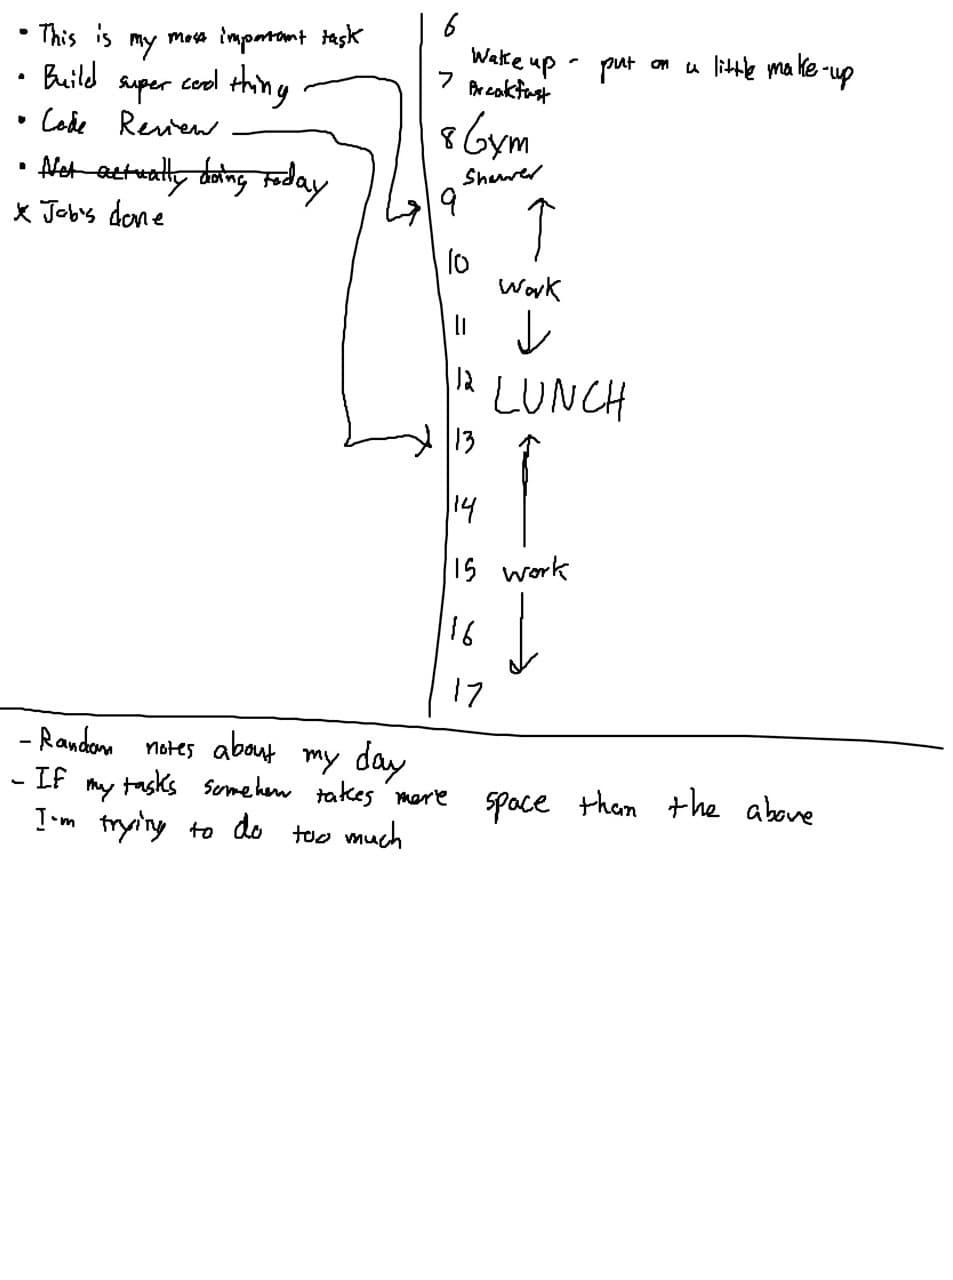 • This is my most important task
• Build super cool thing
• Code Review
• Not actually doing today
x Job's done
6
Wake up - put on a little make-up
7 Breakfast
8 Gym
Shower
9
10
Work
11
12 LUNCH
13
14
15 work
16
17
- Random notes about my day
- If my tasks somehow takes more space than the above
I'm trying to do too much